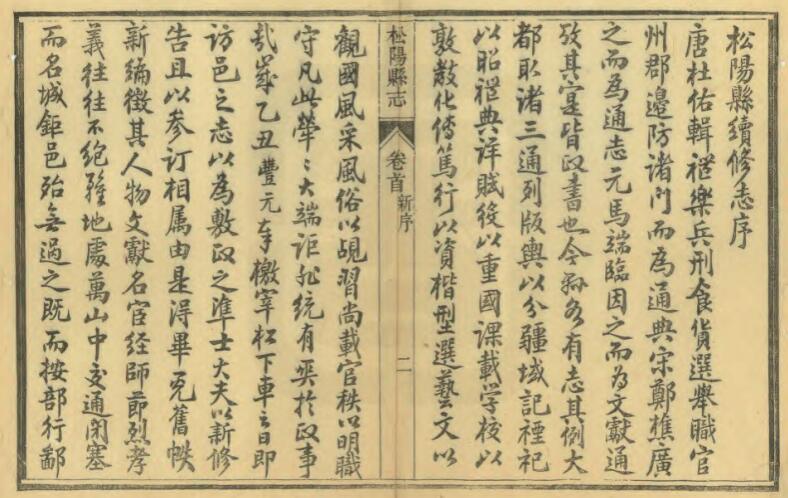 松陽縣續修志序
唐杜佑輯禮樂兵刑食貨選舉職官
州郡邊防諸門而爲通典宋鄭樵廣
之而為通志元馬端臨因之而为文獻通
攷其實皆政書也今縣各有志其例大
都取諸三通列版輿以分疆域記禋祀
以昭禮典详賦役以重國課載学校以
敦敎化傳篤行以資楷型選藝文以
松陽縣志 卷首 新序 二
觀國風采風俗以覘習尚載官秩以明職
守凡此犖〻大端詎非統有於政事
哉歲乙丑豐元奉檄宰松下車之日即
访邑之志以為敷政之準士大夫以新修
告且以參订相属由是得畢舊帙
新編徵其人物文獻名宦经師節烈孝
義往往不絕雖地處萬山中交通閉塞
而名城鉅邑殆無過之既而按部行鄙